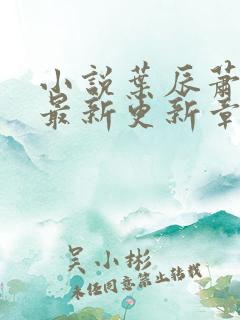 小說葉辰蕭
最新更新章
吴小彬
未经同意禁止转载